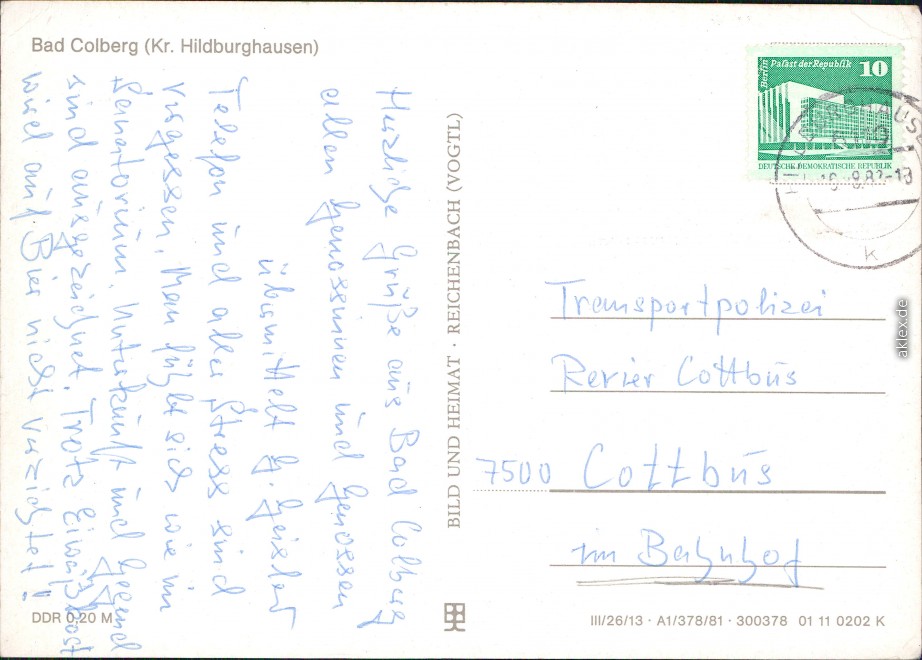 Bad Colberg (Kr. Hildburghausen)
Herzliche Grüße aus Bad Colberg
allen Genossinnen und Genossen
übermittelt G. Geisler
Telefon und aller Stress sind
vergessen. Man fühlt sich wie im
Sanatorium. Unterkunft und Gegend
sind ausgezeichnet. Trotz Eiweißkost
wird auf Bier nicht verzichtet!!
BILD UND HEIMAT · REICHENBACH (VOGTL)
Berlin Palast der Republik 10
DEUTSCHE DEMOKRATISCHE REPUBLIK
k
Transportpolizei
Revier Cottbus
7500 Cottbus
im Bahnhof
DDR 0,20 M
III/26/13 · A1/378/81 · 300378 01 11 0202 K
aklex.de